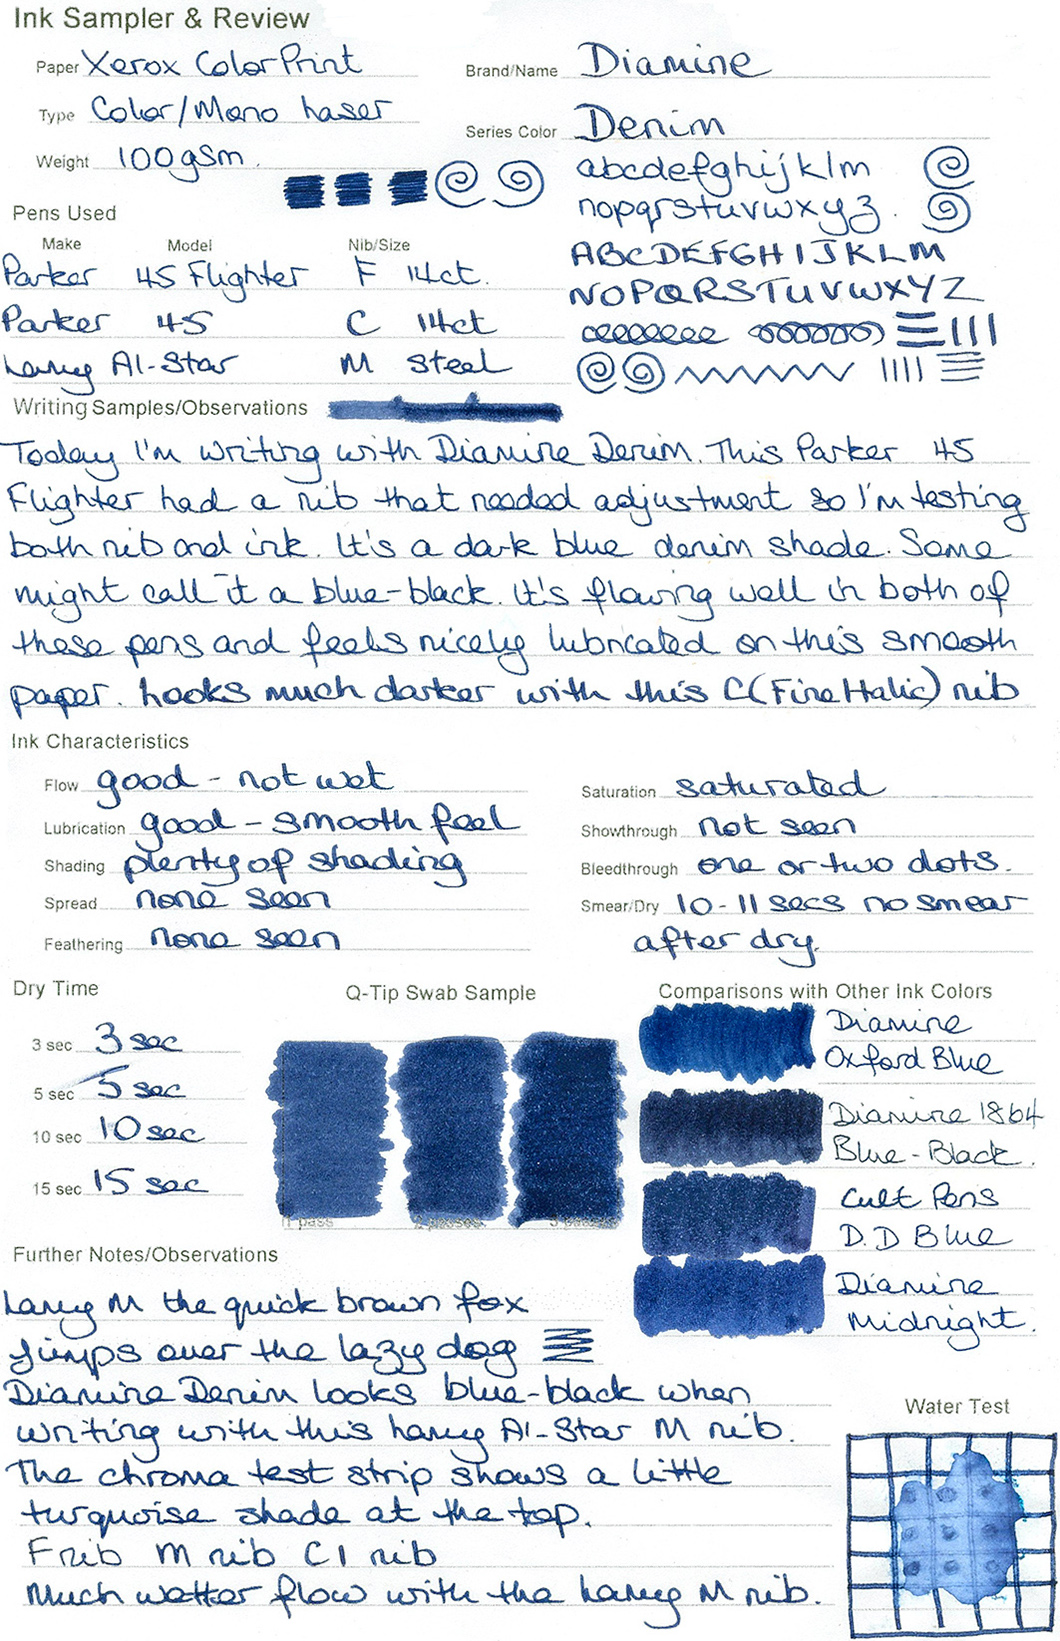 Ink Sampler & Review
Paper Xerox ColorPrint
Type Color/Mono Laser
Weight 100gsm.
Brand/Name Diamine
Series Color Denim
abcdefghijklm
nopqrstuvwxyz.
ABCDEFGHIJKLM
NOPQRSTUVWXYZ
Pens Used
Make Model Nib/Size
Parker 45 Flighter F 14ct.
Parker 45 C 14ct
Lamy Al-Star M steel
Writing Samples/Observations
Today I'm writing with Diamine Denim. This Parker 45
Flighter had a nib that needed adjustment so I'm testing
both nib and ink. It's a dark blue denim shade. Some
might call it a blue-black. It's flowing well in both of
these pens and feels nicely lubricated on this smooth
paper. Looks much darker with this C (Fine Italic) nib
Ink Characteristics
Flow good - not wet
Lubrication good - smooth feel
Shading plenty of shading
Spread none seen
Feathering none seen
Saturation saturated
Showthrough not seen
Bleedthrough one or two dots.
Smear/Dry 10-11 secs no smear
after dry.
Dry Time
3 sec 3 sec
5 sec 5 sec
10 sec 10 sec
15 sec 15 sec
Q-Tip Swab Sample
1 pass 2 passes 3 passes
Comparisons with Other Ink Colors
Diamine
Oxford Blue
Diamine 1864
Blue-Black.
Cult Pens
D.D Blue
Diamine
Midnight.
Further Notes/Observations
Lamy M the quick brown fox
jumps over the lazy dog
Diamine Denim looks blue-black when
writing with this Lamy Al-Star M nib.
The chroma test strip shows a little
turquoise shade at the top.
F nib M nib C I nib
Much wetter flow with the Lamy M nib.
Water Test